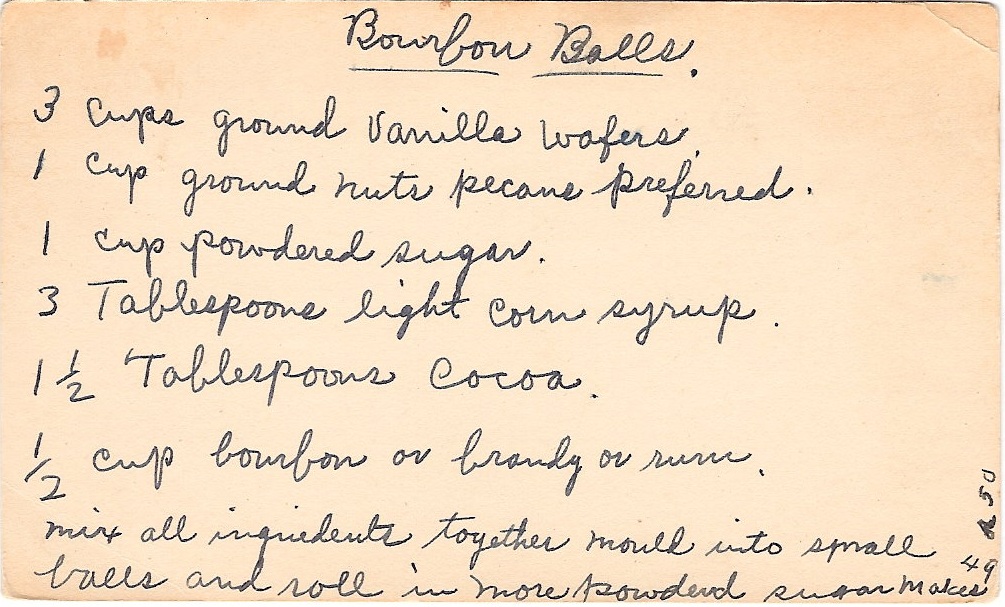 Bourbon Balls.
3 Cups ground Vanilla wafers.
1 cup ground nuts pecans preferred.
1 cup powdered sugar.
3 Tablespoons light corn syrup.
1 1/2 Tablespoons Cocoa.
1/2 cup bourbon or brandy or rum.
mix all ingriedents together mould into small
balls and roll in more powderd sugar Makes
49
& 50